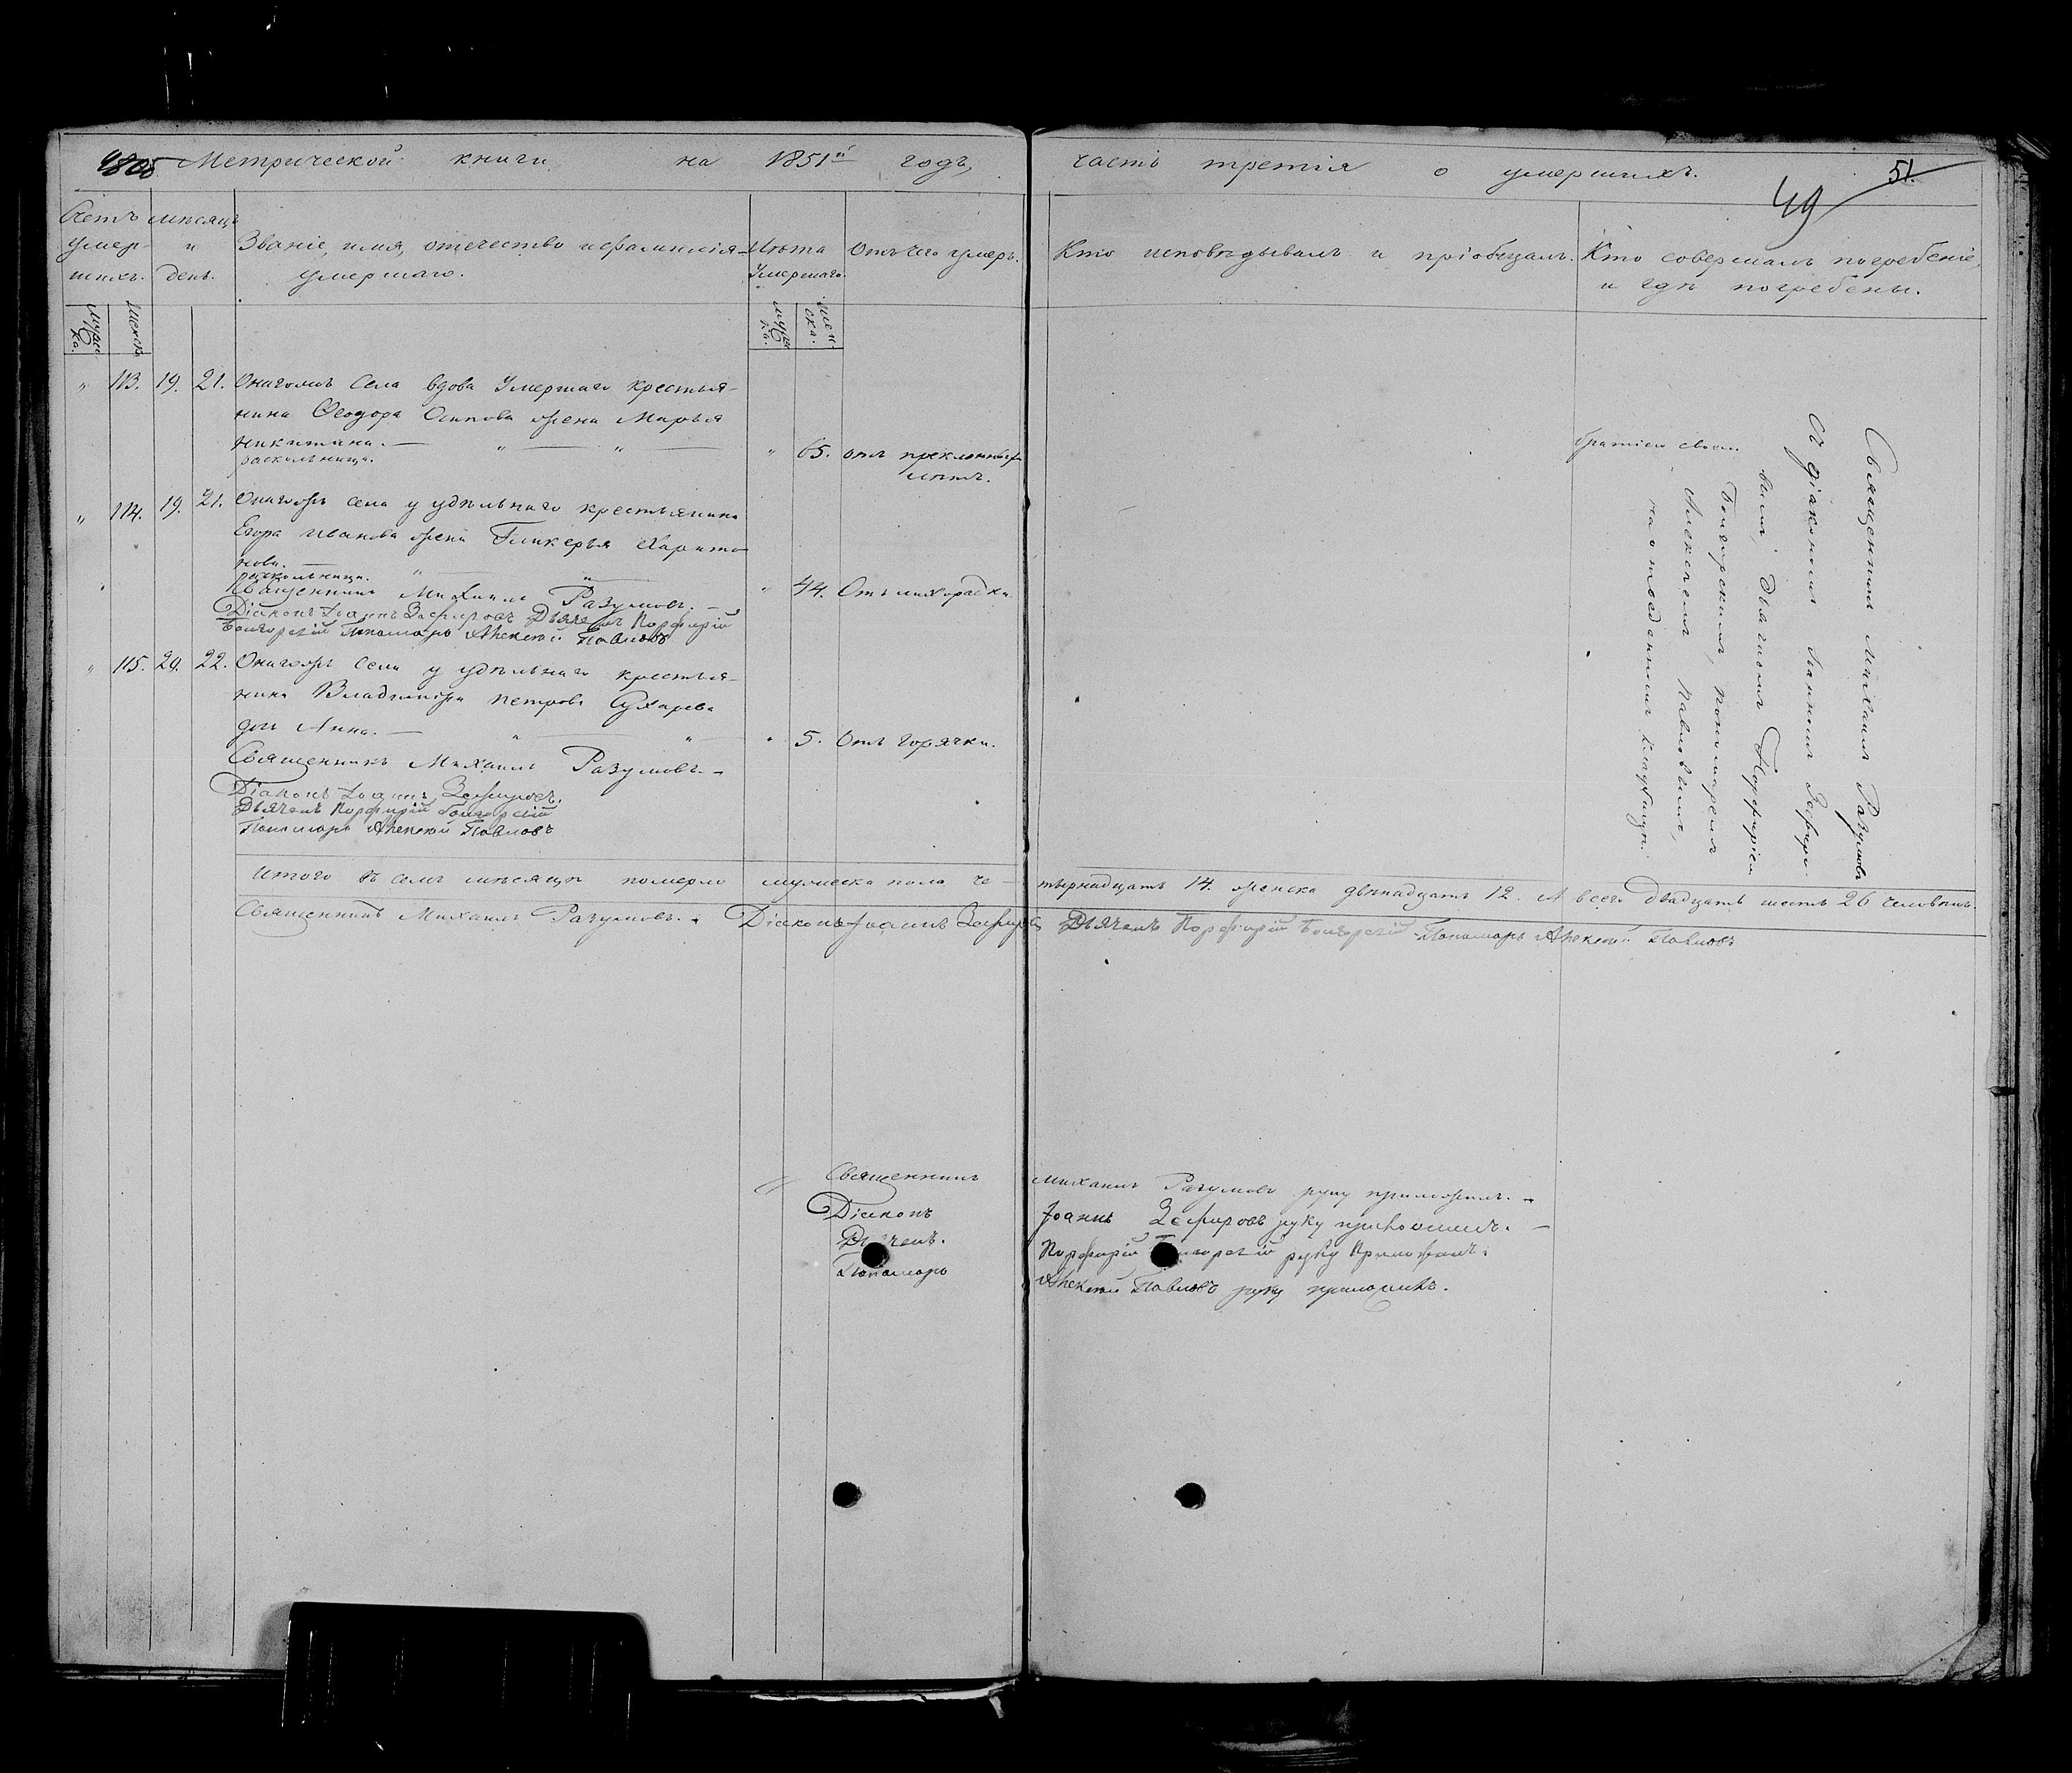 Метрической книги на 1851й годъ, часть третія о умершихъ. 51.
49
Счетъ умер-шихъ.
мѣсяцъ и день.
Званіе, имя, отечество и фамилія умершаго.
Лѣта Умершаго.
Отъ чего умеръ.
Кто исповѣдывалъ и пріобщалъ.
Кто совершалъ погребеніе, и гдѣ погребены.
мужес ка.
женск
мужес ка.
жен ска.
" 113. 19. 21. Онагожъ Села вдова Умершаго крестья-
нина Ѳеодора Осипова жена Марья
Никитина. — " — " —
раскольница. " 65. отъ преклонныхъ
лѣтъ.
" 114. 19. 21. Онагожъ села у удѣльнаго крестьянина
Егора Иванова жена Гликерья Харито-
нова. —
раскольница. " — " " 44. Отъ лихорадки.
Священникъ Михаилъ Разумовъ. —
Діаконъ Іоаннъ Зефировъ Дьячекъ Порфирій
Пономарь Алексѣй Павловъ
" 115. 20. 22. Онагожъ Села у удѣльнаго крестья-
нина Владиміра Петрова Сухарева
дочь Анна. — " — " — " 5. Отъ горячки.
Священникъ Михаилъ Разумовъ. —
Діаконъ Іоаннъ Зефировъ.
Дьячекъ Порфирій
Пономарь Алексѣй Павловъ
Священникъ Михаилъ Разумовъ
съ діакономъ Іоанномъ Зефиро-
вымъ, Дьячкомъ Порфиріем
Пономаремъ
Алексѣемъ Павловымъ,
на кладбищѣ.
Итого въ семъ мѣсяцѣ померло мужеска пола че-тырнадцать 14. женска двѣнадцать 12. А всего двадцать шесть 26 человѣкъ.
Священникъ Михаилъ Разумовъ. Діаконъ Іоаннъ Зефировъ Дьячекъ Порфирій Пономарь Алексѣй Павловъ
Священникъ Михаилъ Разумовъ руку приложилъ. —
Діаконъ Іоаннъ Зефировъ руку приложилъ. —
Дьячекъ. Порфирій руку Приложилъ.
Пономарь Алексѣй Павловъ руку приложилъ.